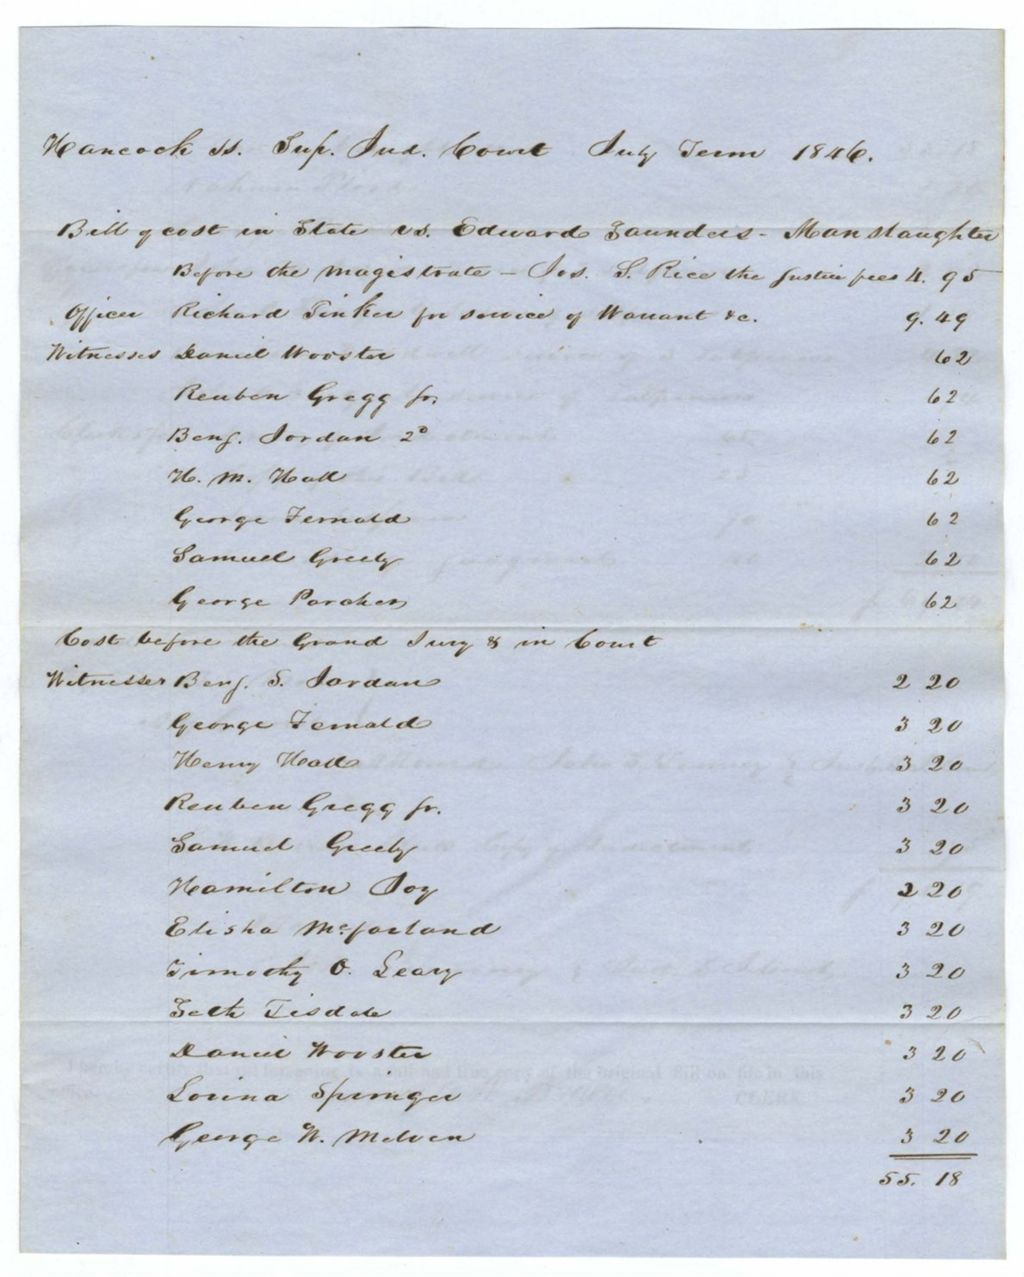 Hancock ss. Sup. Jud. Court July Term 1846.
Bill of cost in State vs. Edward Saunders - Manslaughter
Before the magistrate - Jos. S. Rice the Justice fees 4.95
Officer Richard Tinker for service of Warrant &c. 9.49
Witnesses Daniel Wooster 62
Reuben Gregg Jr. 62
Benj. Jordan 2d 62
H. M. Hall 62
George Fernald 62
Samuel Greely 62
George Paracher 62
Cost before the Grand Jury & in Court
Witnesses Benj. S. Jordan 2 20
George Fernald 3 20
Henry Hall 3 20
Reuben Gregg Jr. 3 20
Samuel Greely 3 20
Hamilton Joy 2 20
Elisha McFarland 3 20
Timothy O. Leary 3 20
Seth Tisdale 3 20
Daniel Wooster 3 20
Lorina Springer 3 20
George W. Melven 3 20
55.18